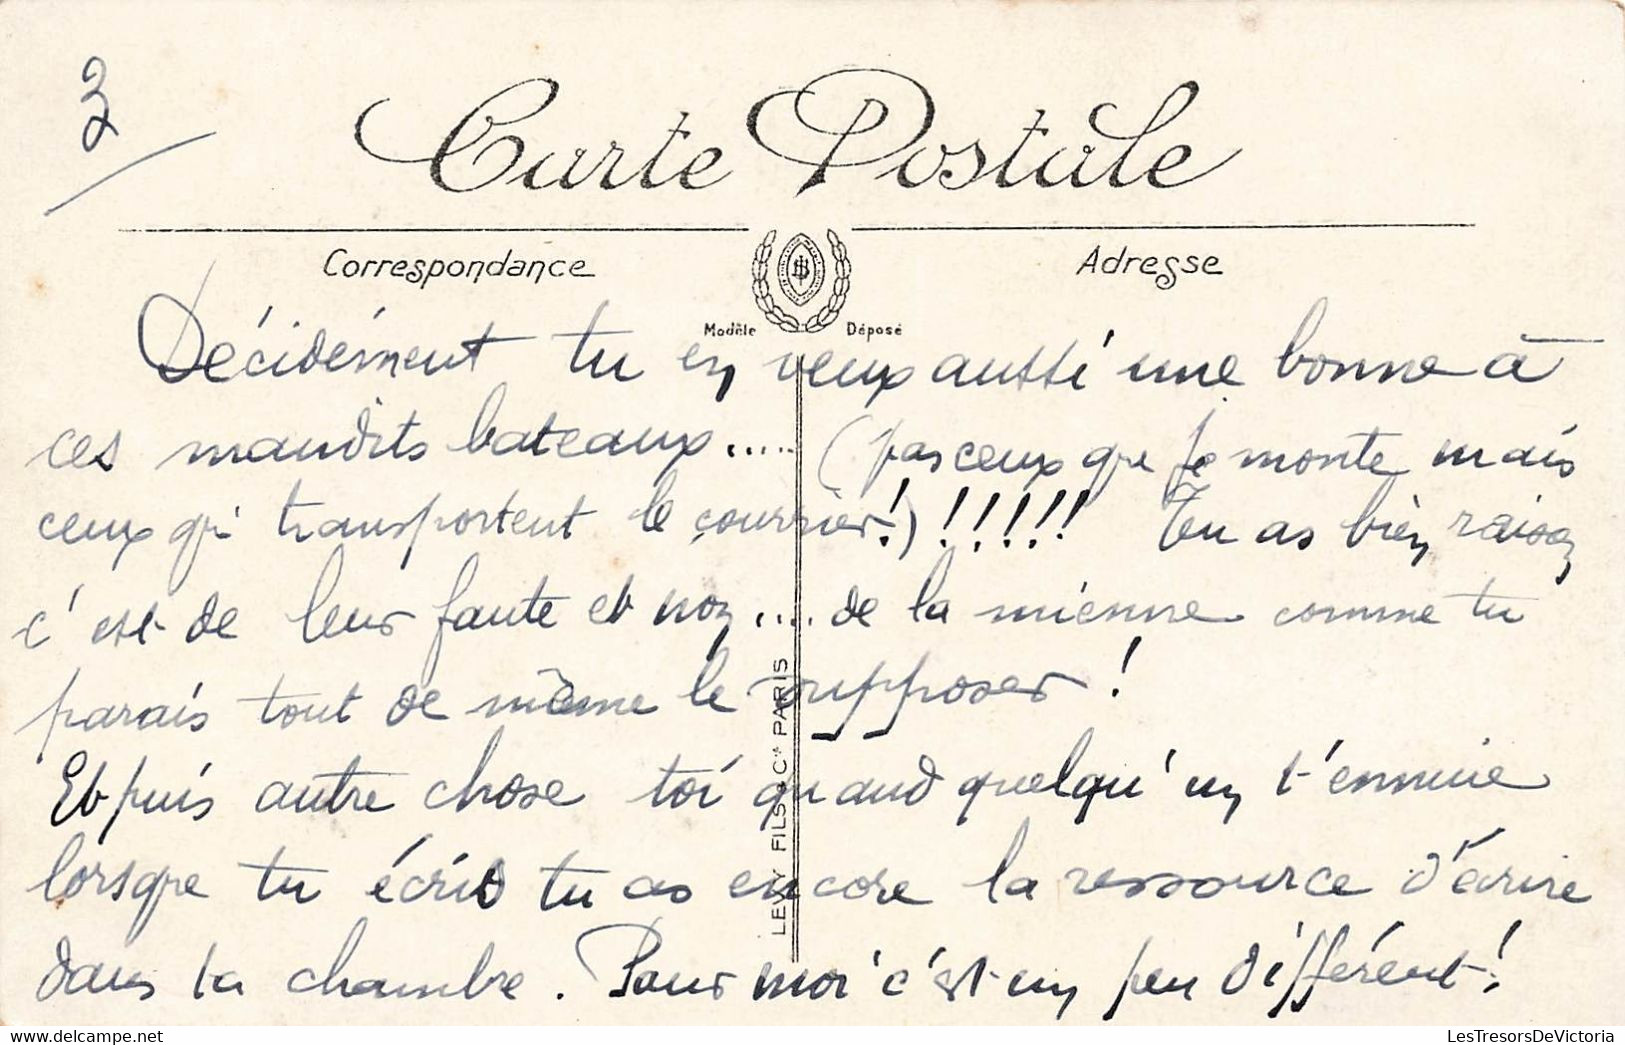 3
Carte Postale
Correspondance
Adresse
Modèle Déposé
Décidément tu en veux aussi une bonne à
ces maudits bateaux..... (pas ceux que je monte mais
ceux qui transportent le courrier!) !!!!! Tu as bien raison
c'est de leur faute et non .... de la mienne comme tu
parais tout de même le supposer !
Et puis autre chose toi quand quelqu'un t'ennuie
lorsque tu écris tu as encore la ressource d'écrire
dans ta chambre. Pour moi c'est un peu différent !
LEVY FILS & Cie PARIS
LesTresorsDeVictoria